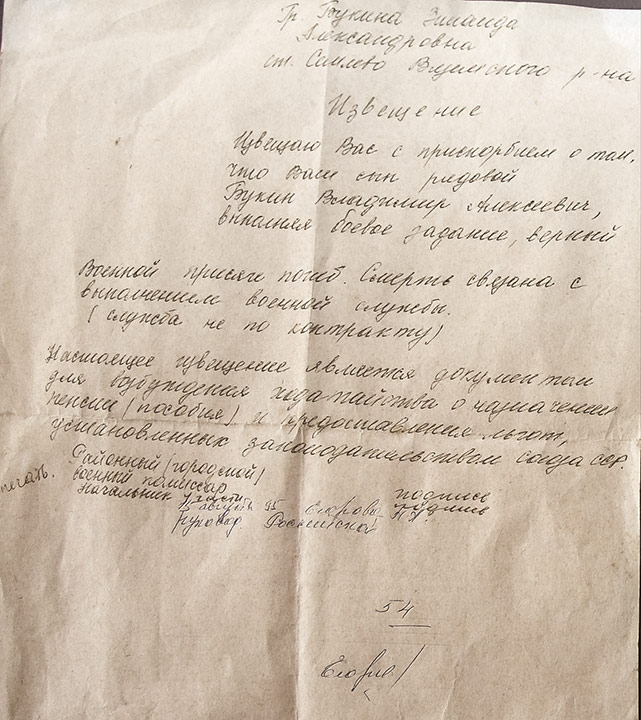 Гр Букина Зинаида
Александровна
ст. Семлево Вяземского р-на
Извещение
Извещаю Вас с прискорбием о том,
что Ваш сын рядовой
Букин Владимир Алексеевич,
выполняя боевое задание, верный
Военной присяге погиб. Смерть связана с
выполнением военной службы.
(служба не по контракту)
Настоящее извещение является документом
для возбуждения ходатайства о назначении
пенсии (пособия) и предоставления льгот,
установленных законодательством союза ССР.
печать. Районный (городской)
военный комиссар подпись
Начальник части подпись
августа 95 Егорова
Российской
54